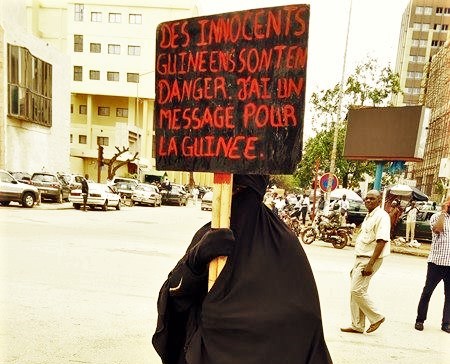 DES INNOCENTS
GUINEENS SONT EN
DANGER. J'AI UN
MESSAGE POUR
LA GUINEE.